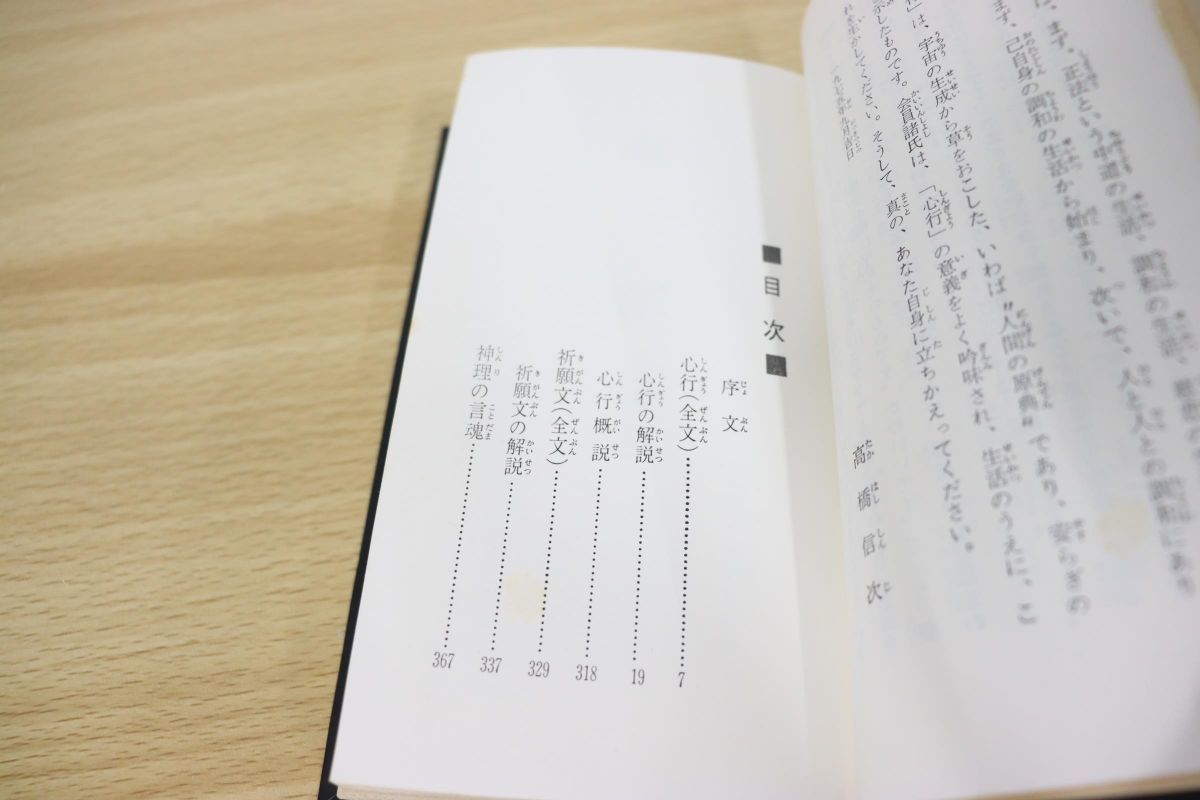 は、まず、正法という中道の生活、調和の生活、慈悲の
まず、己自身の調和の生活から始まり、次いで、人と人との調和にあり
」は、宇宙の生成から草をおこした、いわば〝人間の原典〟であり、安らぎの
示したものです。会員諸氏は、「心行」の意義をよく吟味され、生活のうえに、こ
れを生かしてください。そうして、真の、あなた自身に立ちかえってください。
一九七五年九月吉日
高橋信次
■目次■
序文
心行(全文)……7
心行の解説……19
心行概説……318
祈願文(全文)……329
祈願文の解説……337
神理の言魂……367